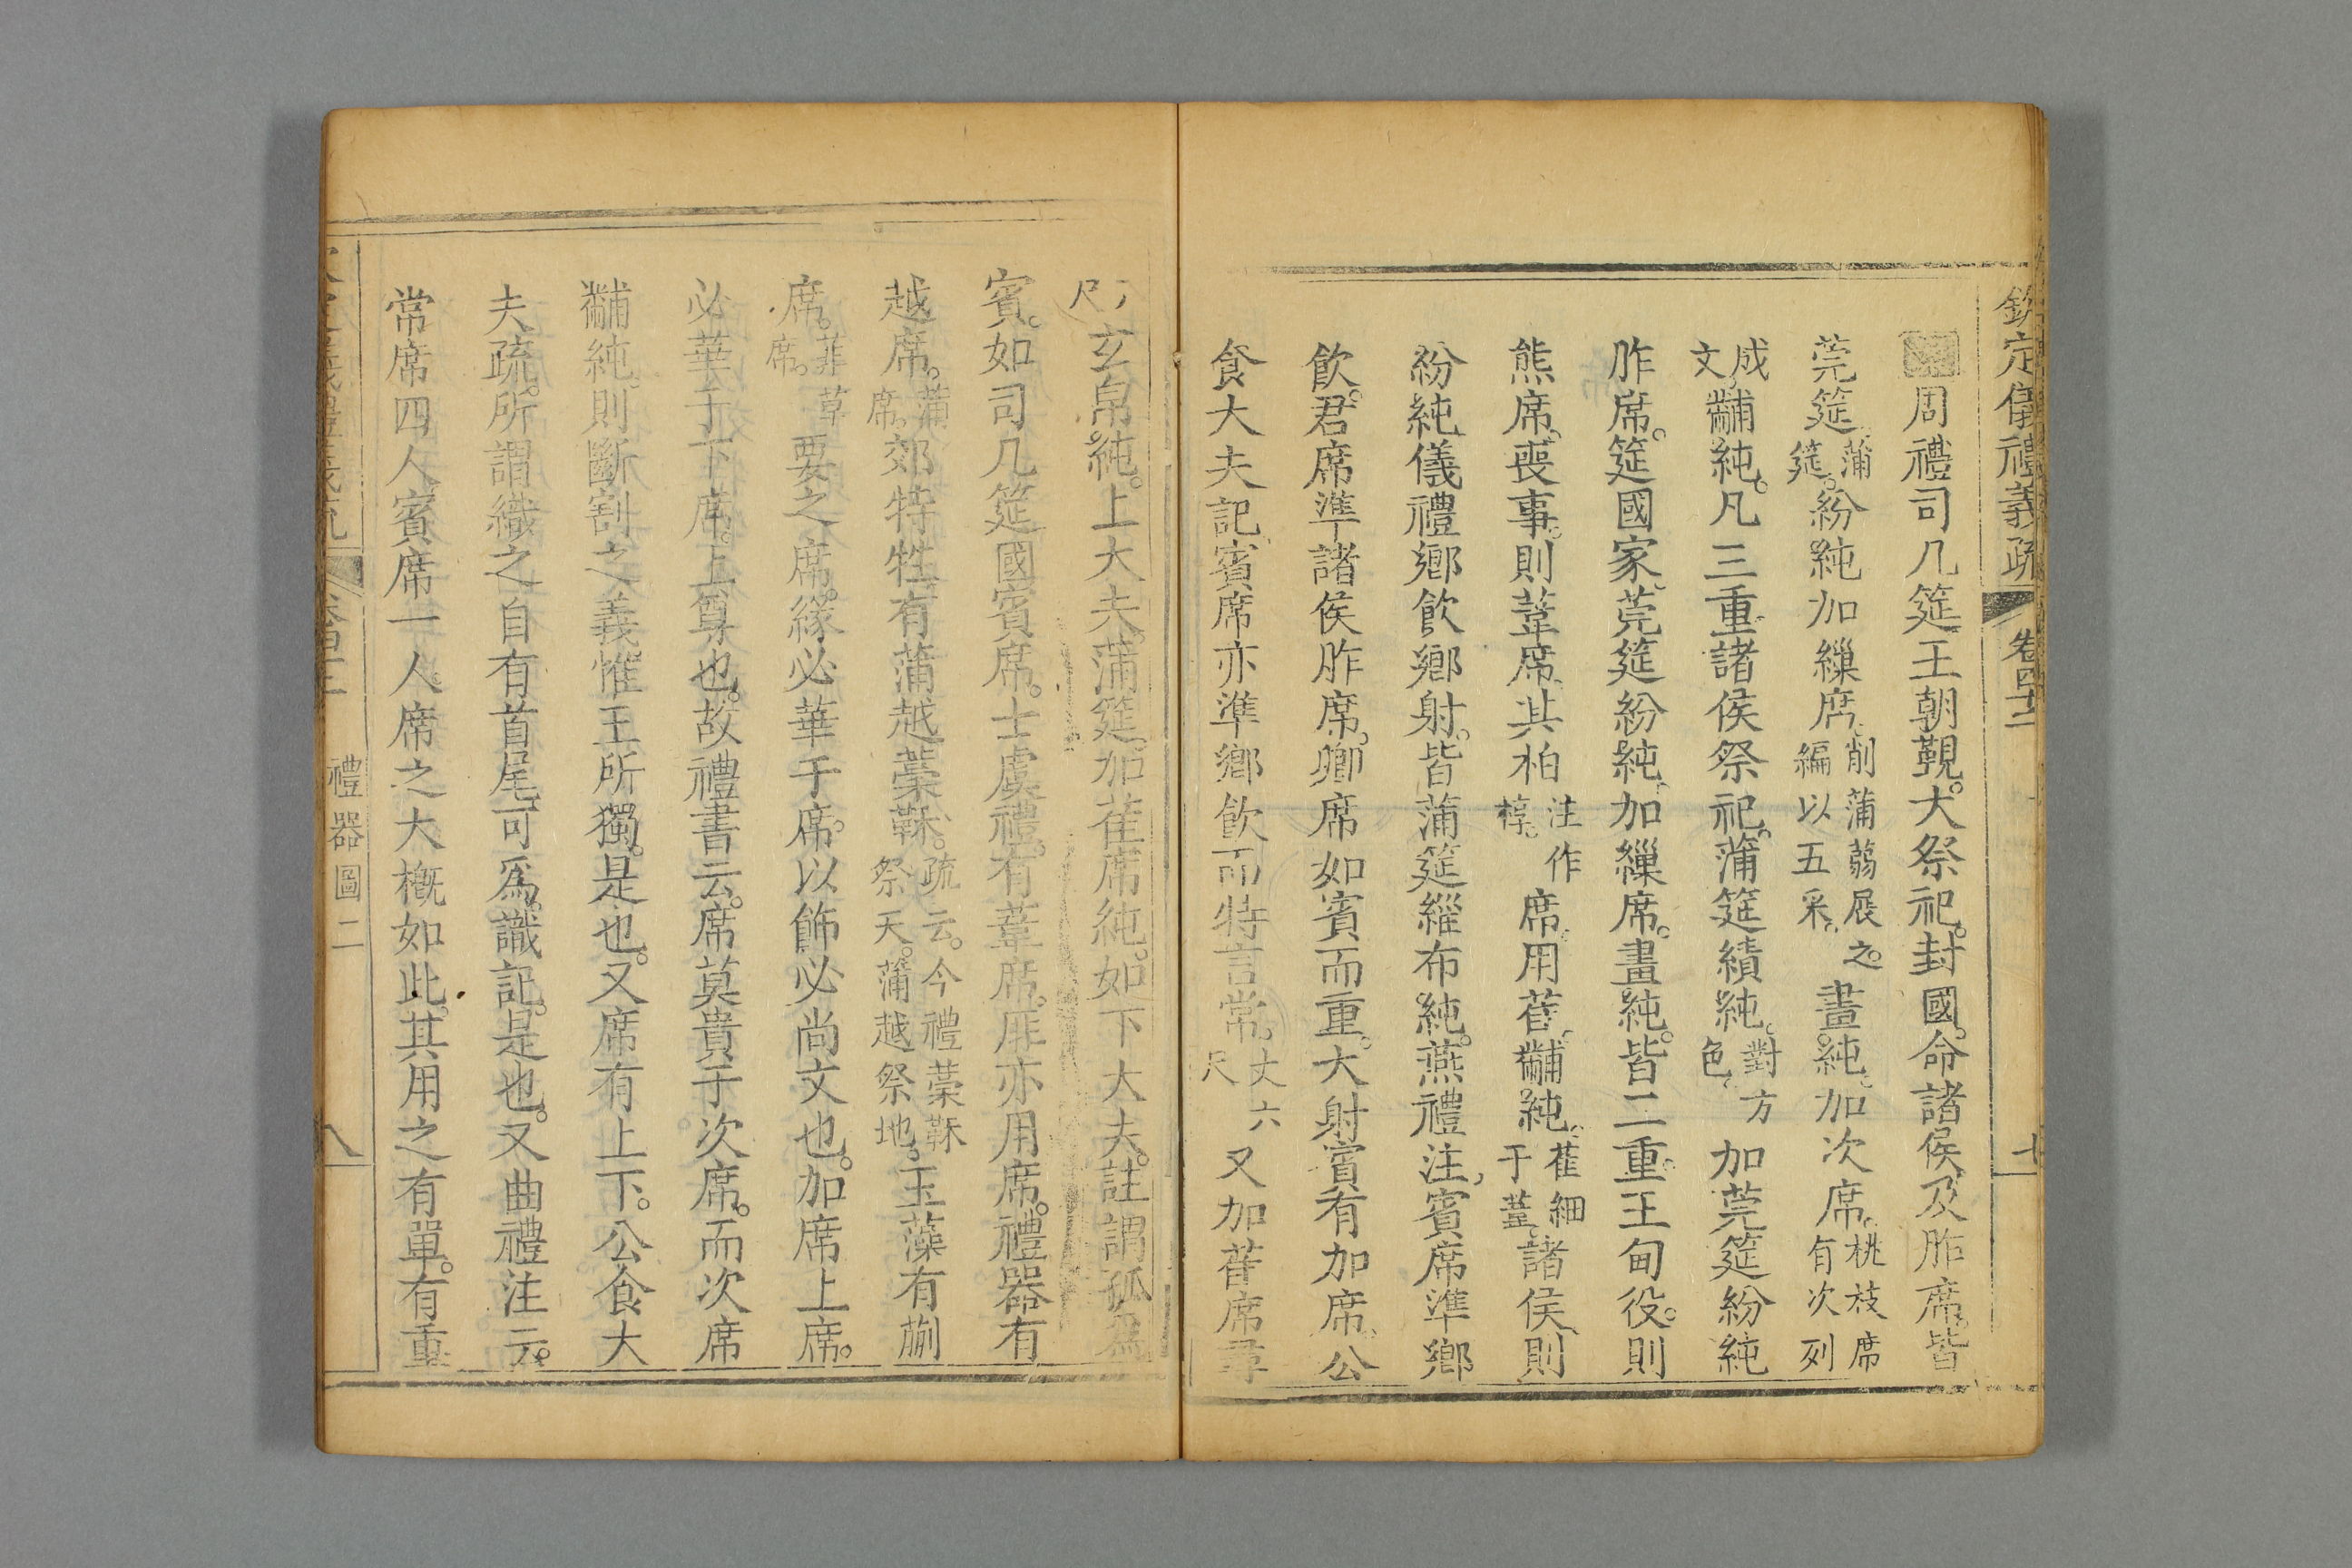 欽定儀禮義疏 卷四十二 七
周禮司几筵王朝覲。大祭祀。封國。命諸侯。及胙席。皆
莞筵。蒲筵。紛純加繅席。削蒲蒻展之。編以五采。畫純。加次席。桃枝席有次列
成文。黼純。凡三重。諸侯祭祀。蒲筵繢純。對方色。加莞筵紛純
胙席。筵國家。莞筵紛純。加繅席。畫純。皆二重。王甸役。則
熊席。喪事。則葦席。其柏注作椁。席。用萑。黼純。萑細于葦。諸侯則
紛純儀禮鄉飲鄉射。皆蒲筵緇布純。燕禮注。賓席準鄉
飲。君席準諸侯胙席。卿席如賓而重。大射賓有加席。公
食大夫記賓席亦準鄉飲而特言常。丈六尺又加萑席尋
尺玄帛純。上大夫。蒲筵。加萑席純。如下大夫。註謂孤爲
賓。如司几筵國賓席。士虞禮。有葦席。厞亦用席。禮器有
越席。蒲席。郊特牲有蒲越藁鞂。疏云。今禮藁鞂祭天。蒲越祭地。玉藻有蒯
席。菲草席。要之席。緣必華于席。以飾必尚文也。加席上席。
必華于下席。上尊也。故禮書云。席莫貴于次席。而次席
黼純。則斷割之義惟王所獨。是也。又席有上下。公食大
夫疏。所謂織之自有首尾。可爲識記。是也。又曲禮注云。
常席四人賓席一人席之大概如此。其用之有單。有重
禮器圖二 八